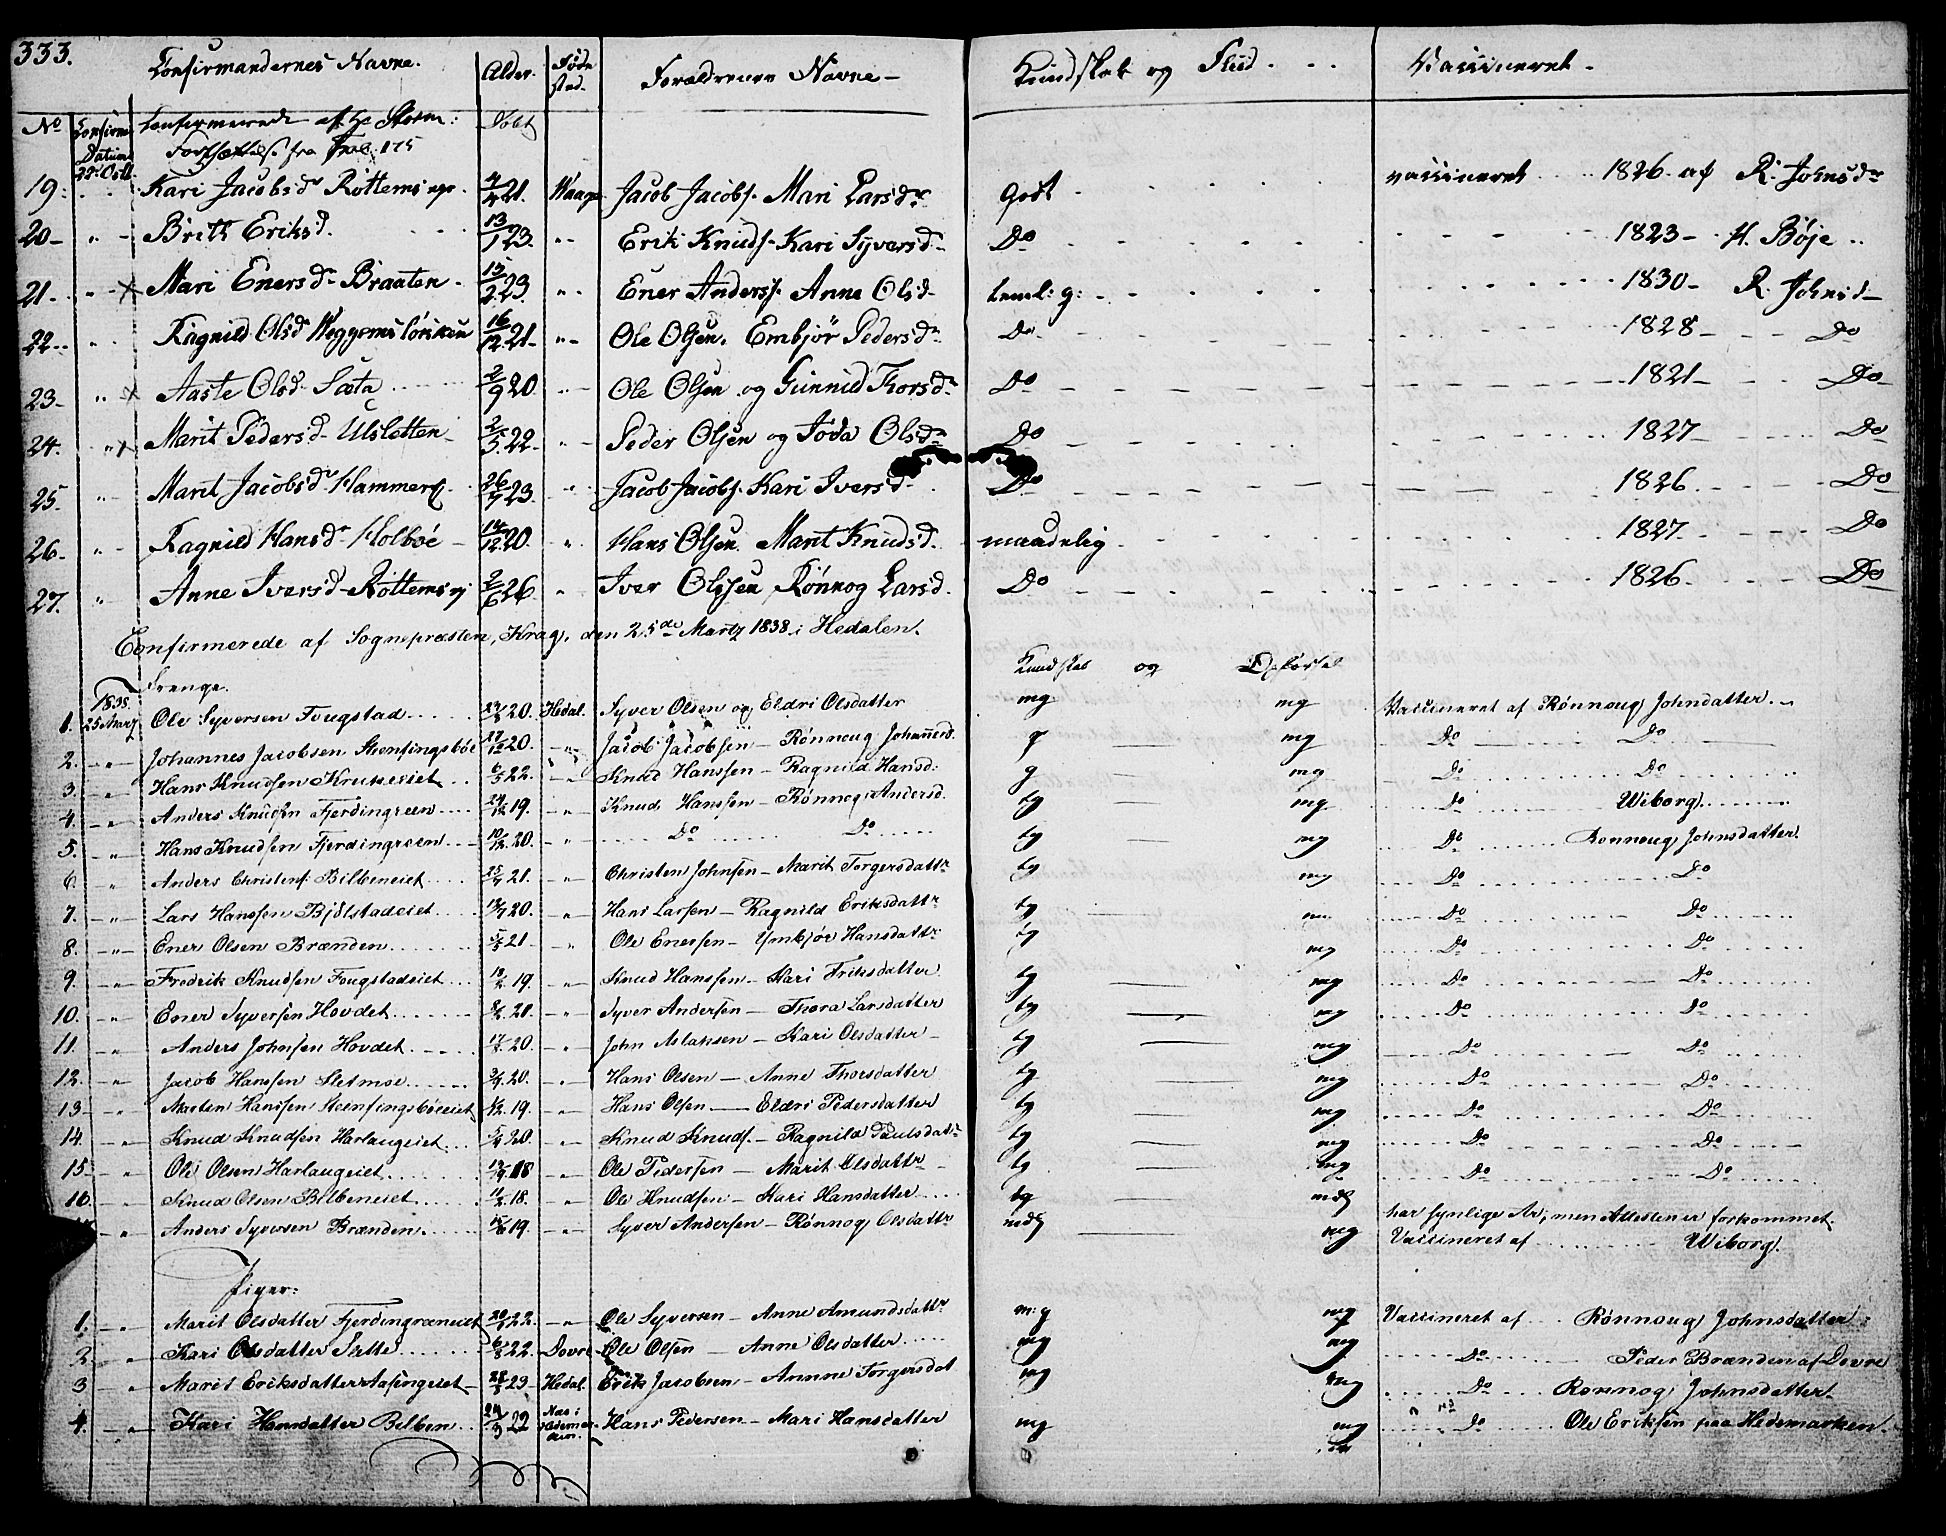 333.
Confirmandernes Navne. Alder. Fødested. Forældrenes Navne – Kundskab og Fliid . . . Vaccineret.
No Confirm: Datum Confirmerede af Hr Storm: Døbt
22de Octb. Fortsættelse fra Fol: 175
19. Kari Jacobsdr Rottems 21. Waage Jacob Jacobs. Mari Larsdr Godt vaccineret 1826 af R. Johnsdr
20 – „ – Brith Eriksd. 13/1 23. „ Erik Knuds. Kari Syversd. Do 1823 – H. Bøje
21. „ – x Mari Enersdr Braaten – 15/2 23. „ Ener Anderss. Anne Olsd. temmel: g: 1830 – R. Johnsd –
22. „ Ragnild Olsdr 16/12 21 – „ Ole Olsen. Embjør Pedersdr Do 1828 – Do
23 – „ x Aaste Olsd. Sæta 2/9 20. „ Ole Olsen og Gunnild Thorsdr Do 1821 – Do
24. „ x Marit Pedersd. Ulsletten 2/5 22 – „ Peder Olsen og Joda Olsdr Do 1827 – Do
25 „ Marit Jacobsdr Hammer 26/7 23 „ Jacob Jacobs. Kari Iversd. Do 1826. Do
26. „ Ragnild Hansdr Holbøe – 14/12 20. „ Hans Olsen. Marit Knudsd. maadelig 1827. Do
27. „ Anne Iversd. Rottems 2/6 26. „ Iver Olssen Rønnog Larsd. Do 1826. Do
Confirmerede af Sognepræsten, Krag, den 25de Martz 1838 i Hedalen.
Drenge. Kundskab og Opførsel
1. 1838. 25 Martz Ole Syversen Fougstad 20. Hedal. Syver Olsen og Eldri Olsdatter mg mg Vaccineret af Rønnoug Johndatter.
2. – „ – Johannes Jacobsen Steensingsbøe 20. – „ – Jacob Jacobsen – Rønnoug Johannesd. g mg Do Do
3. – „ Hans Knudsen Krukeeiet 6/5 22. – „ Knud Hanssen – Ragnild Hansd: g mg Do Do
4. – „ Anders Knudsen Fjerdingreen 19. „ Knud Hanssen – Rønnog Andersd. tg mg Do Wiborg.
5. – „ – Hans Knudsen Fjerdingreen 20. „ Do Do tg mg Do Ronnoug Johnsdatter.
6. „ Anders Christens. Bilbeneiet 21. – „ – Christen Johnsen – Marit Torgersdattr tg mg Do Do
7. – „ – Lars Hanssen Bjølstadeiet 20. – „ – Hans Larsen – Ragnild Eriksdattr tg Do Do
8. – „ – Ener Olsen Brænden 21 – „ Ole Enersen – Ymbjør Hansdattr tg mg Do Do
9. – „ – Fredrik Knudsen Fougstadeiet 19. – „ – Knud Hanssen – Kari Friksdatter tg mg Do Do
10. – „ – Ener Syversen Hovdet 21. – „ – Syver Andersen – Thora Larsdatter tg mg Do Do
11. – „ Anders Johnsen Hovdet 20. – „ John Aslaksen – Kari Olsdatter – tg mg Do Do
12. – „ Jacob Hanssen Sletmoe 20. – „ Hans Olsen – Anne Thorsdatter tg mg Do Do
13 – „ Morten Hanssen Steensingsbøeeiet 19. – „ Hans Olsen – Eldri Pedersdatter tg mg Do Do
14. – „ – Knud Knudsen Harlaugeiet 20. – „ – Knud Knuds. – Ragnild Paulsdatr tg mg Do Do
15 – „ Ole Olsen Harlaugeiet 18 – „ Ole Pedersen – Marit Olsdattr tg mg Do Do
16. – „ Knud Olsen Bilbeneiet 18. „ Ole Knudsen – Kari Hansdatter tg mdl har synlige Ar, men Attesten er forkommet.
– „ – Anders Syversen Brænden 19. – „ Syver Andersen – Rønnog Olsdattr mdl mg Vaccineret af Wiborg.
Piger:
1. – „ – Marit Olsdatter Fjerdingreeneiet 22. – „ – Ole Syversen – Anne Amundsdattr m:g mg Vaccineret af Rønnoug Johnsdatter.
2 – „ Kari Olsdatter Sætte 6/8 22. Dovre Ole Olsen – Anne Olsdatter mg mg Do Peder Brænden af Dovre
3 – „ Marit Eriksdatter Aasingeiet 23 – Hedal. Erik Jacobsen – Annne Torgersdat mg mg Do Ronnog Johnsdatter
4. – „ – Kari Hansdatter Bilben 22 Hans Pedersen – Mari Hansdatter mg mg Do Ole Eriksen paa Hedemarken.